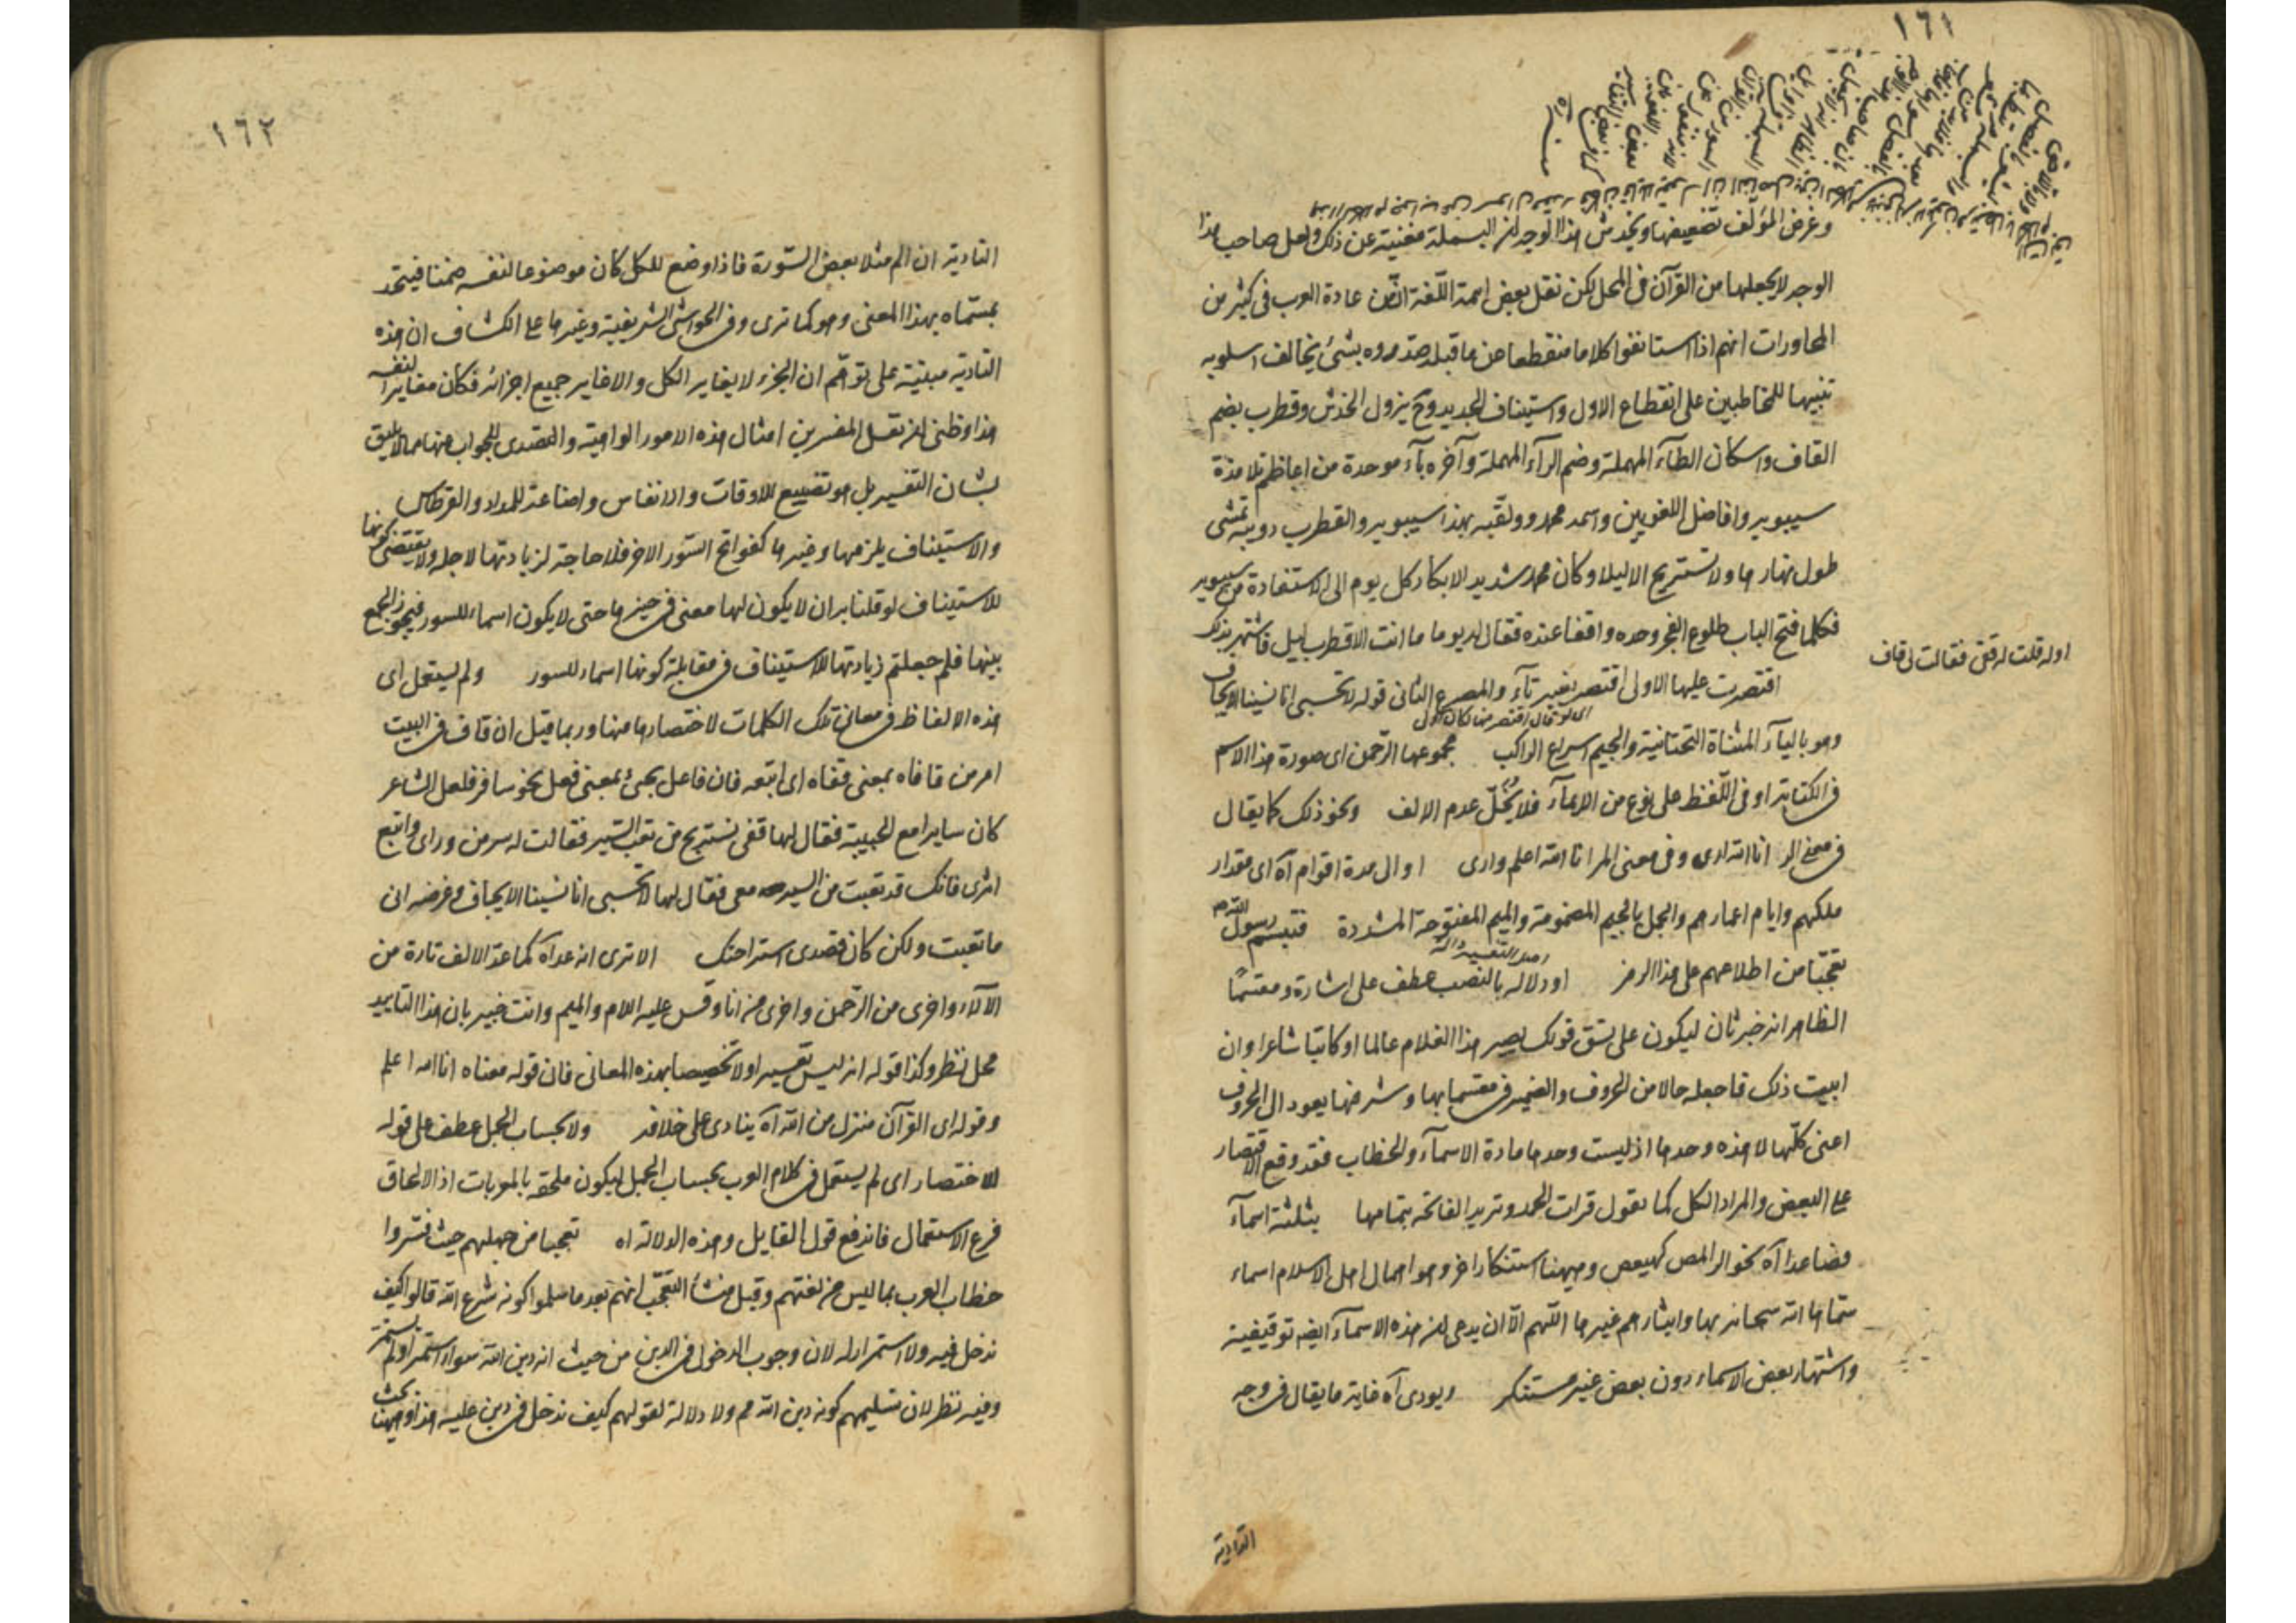 ١٦١
وغرض المؤلف تضعيفها ويخدش هذا الوجه ان البسملة مغنية عن ذلك ولعل صاحب هذا
الوجه لا يجعلها من القرآن في المحل لكن نقل بعض ائمة اللغة ان من عادة العرب في كثير من
المحاورات انهم اذا استانفوا كلاما منقطعا عن ما قبله صدروه بشئ يخالف اسلوبه
تنبيها للمخاطبين على انقطاع الاول واستيناف الجديد وح يزول الخدش وقطرب بضم
القاف واسكان الطآء المهملة وضم الرآء المهملة وآخره بآء موحدة من اعاظم تلامذة
سيبويه وافاضل اللغويين واسمه محمد ولقبه بهذا سيبويه والقطرب دويبة تمشى
طول نهارها ولا تستريح الا ليلا وكان محمد شديد الابكار كل يوم الى الاستفادة من سيبويه
فكلما فتح الباب طلوع الفجر وحده واقفا عنده فقال له يوما ما انت الا قطرب ليل فاشتهر بذلك
اوله قلت لها قفى فقالت لى قاف
اقتصرت عليها الاولى اقتصر بغير تآء والمصرع الثانى قوله لا تحسبى انا نسينا الايجاف
وهو باليآء المثناة التحتانية والجيم اسراع الراكب مجموعها الرحمن اى صورة هذا الاسم
فى الكتابة او فى اللفظ على نوع من الايمآء فلا يخل عدم الالف ونحو ذلك كما يقال
فى معنى الر انا الله ارى وفى معنى المر انا الله اعلم وارى او الى مدة اقوام آه اى مقدار
ملكهم وايام اعمارهم والجمل بالجيم المضمومة والميم المفتوحة المشددة فتبسم رسول الله
تعجبا من اطلاعهم على هذا الرمز او دلالة بالنصب عطف على اشارة ومقسما
الظاهر انه خبر ثان ليكون على نسق قولك يصير هذا الغلام عالما او كاتبا شاعرا وان
ابيت ذلك فاجعله حالا من الحروف والضمير فى مقسما بها وشرفها يعود الى الحروف
اعنى كلها لا هذه وحدها اذ ليست وحدها مادة الاسمآء والخطاب فقد وقع الاقتصار
على البعض والمراد الكل كما يقول قرات الحمد وتريد الفاتحة بتمامها بثلثة اسمآء
فصاعدا آه نحو الر المص كهيعص وههنا استنكار اخر وهو اهمال اهل الاسلام اسماء
سماها الله سبحانه بها وايثارهم غيرها اللهم الا ان يدعى ان هذه الاسمآء ايضه توقيفية
واشتهار بعض الاسماء دون بعض غير مستنكر ويودى آه غاية ما يقال فى وجه
التادية
١٦٢
التادية ان الم مثلا بعض السورة فاذا وضع للكل كان موضوعا لنفسه ضمنا فيتحد
بمسماه بهذا المعنى وهو كما ترى وفى الحواشى الشريفية وغيرها على الكشاف ان هذه
التادية مبنية على توهم ان الجزء لا يغاير الكل والا غاير جميع اجزائه فكان مغايرا لنفسه
هذا وظنى ان نقل المفسرين امثال هذه الامور الواهية والتصدى للجواب عنها مما لا يليق
بشان التفسير بل هو تضييع للاوقات والانفاس واضاعة للمداد والقرطاس
والاستيناف يلزمها وغيرها كفواتح السور الاخر فلا حاجة لزيادتها لاجله ولا يقتضى كونها
للاستيناف لو قلنا به ان لا يكون لها معنى فى حيزها حتى لا يكون اسماء للسور فيجوز الجمع
بينها فلم جعلتم زيادتها للاستيناف فى مقابلة كونها اسماء للسور ولم يستعمل اى
هذه الالفاظ فى معانى تلك الكلمات لاختصارها منها وربما قيل ان قاف فى البيت
امر من قافاه بمعنى قفاه اى اتبعه فان فاعل يجئ بمعنى فعل نحو سافر فلعل الشاعر
كان سايرا مع الحبيبة فقال لها قفى نستريح من تعب السير فقالت له سر من وراى واتبع
اثرى فانك قد تعبت من السير معى فقال لها لا تحسبى انا نسينا الايجاف وغرضه انى
ما تعبت ولكن كان قصدى استراحتك الا ترى انه عدآه كما عد الالف تارة من
الآلاء واخرى من الرحمن واخرى من انا وقس عليه اللام والميم وانت خبير بان هذا التاييد
محل نظر وكذا قوله انه ليس تفسيرا ولا تخصيصا بهذه المعانى فان قوله معناه انا الله اعلم
وقوله اى القرآن منزل من الله آه ينادى على خلافه ولا بحساب الجمل عطف على قوله
للاختصار اى لم يستعمل فى كلام العرب بحساب الجمل ليكون ملحقه بالمعربات اذ الالحاق
فرع الاستعمال فاندفع قول القايل وهذه الدلالة اه تعجبا من جهلهم حيث فسروا
خطاب العرب بما ليس من لغتهم وقيل منشأ التعجب انهم بعد ما سلموا كونه شرع الله قالوا كيف
ندخل فيه ولا استمرار له لان وجوب الدخول فى الدين من حيث انه دين الله سواء استمر او لم يستمر
وفيه نظر لان تسليمهم كونه دين الله مم ولا دلالة لقولهم كيف ندخل فى دين عليه هذا وههنا بحث